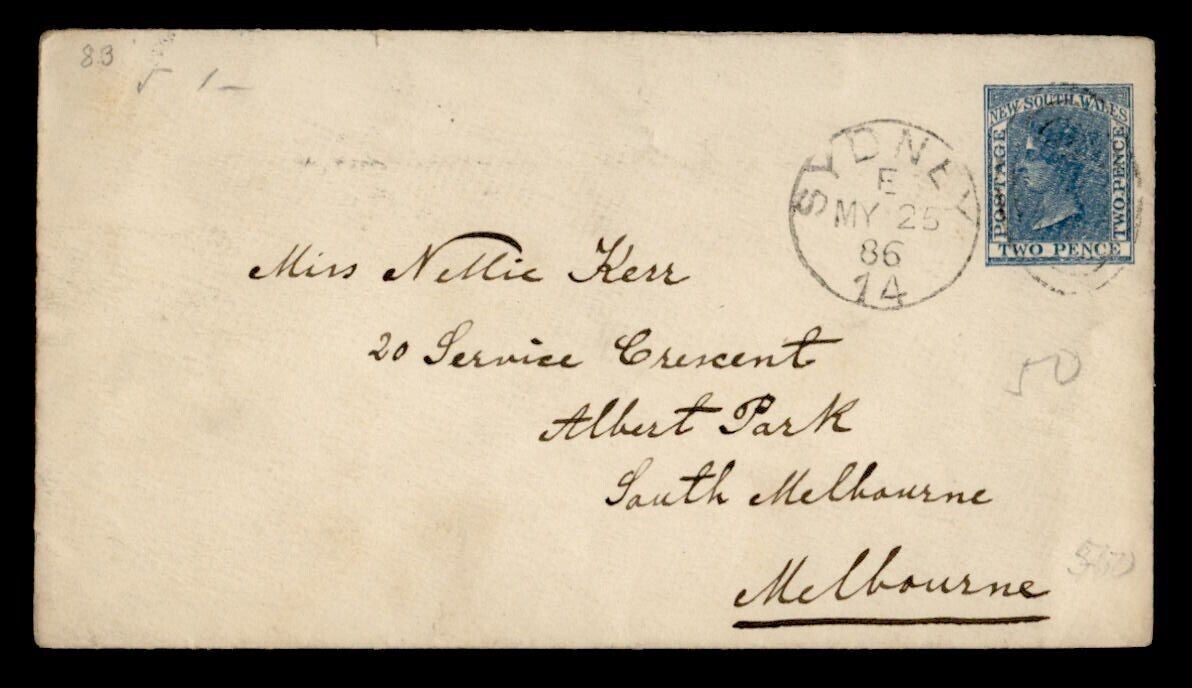 83
NEW SOUTH WALES
POSTAGE
TWO PENCE
TWO PENCE
SYDNEY
E
MY 25
86
14
Miss Nellie Kerr
20 Service Crescent
Albert Park
South Melbourne
Melbourne
50